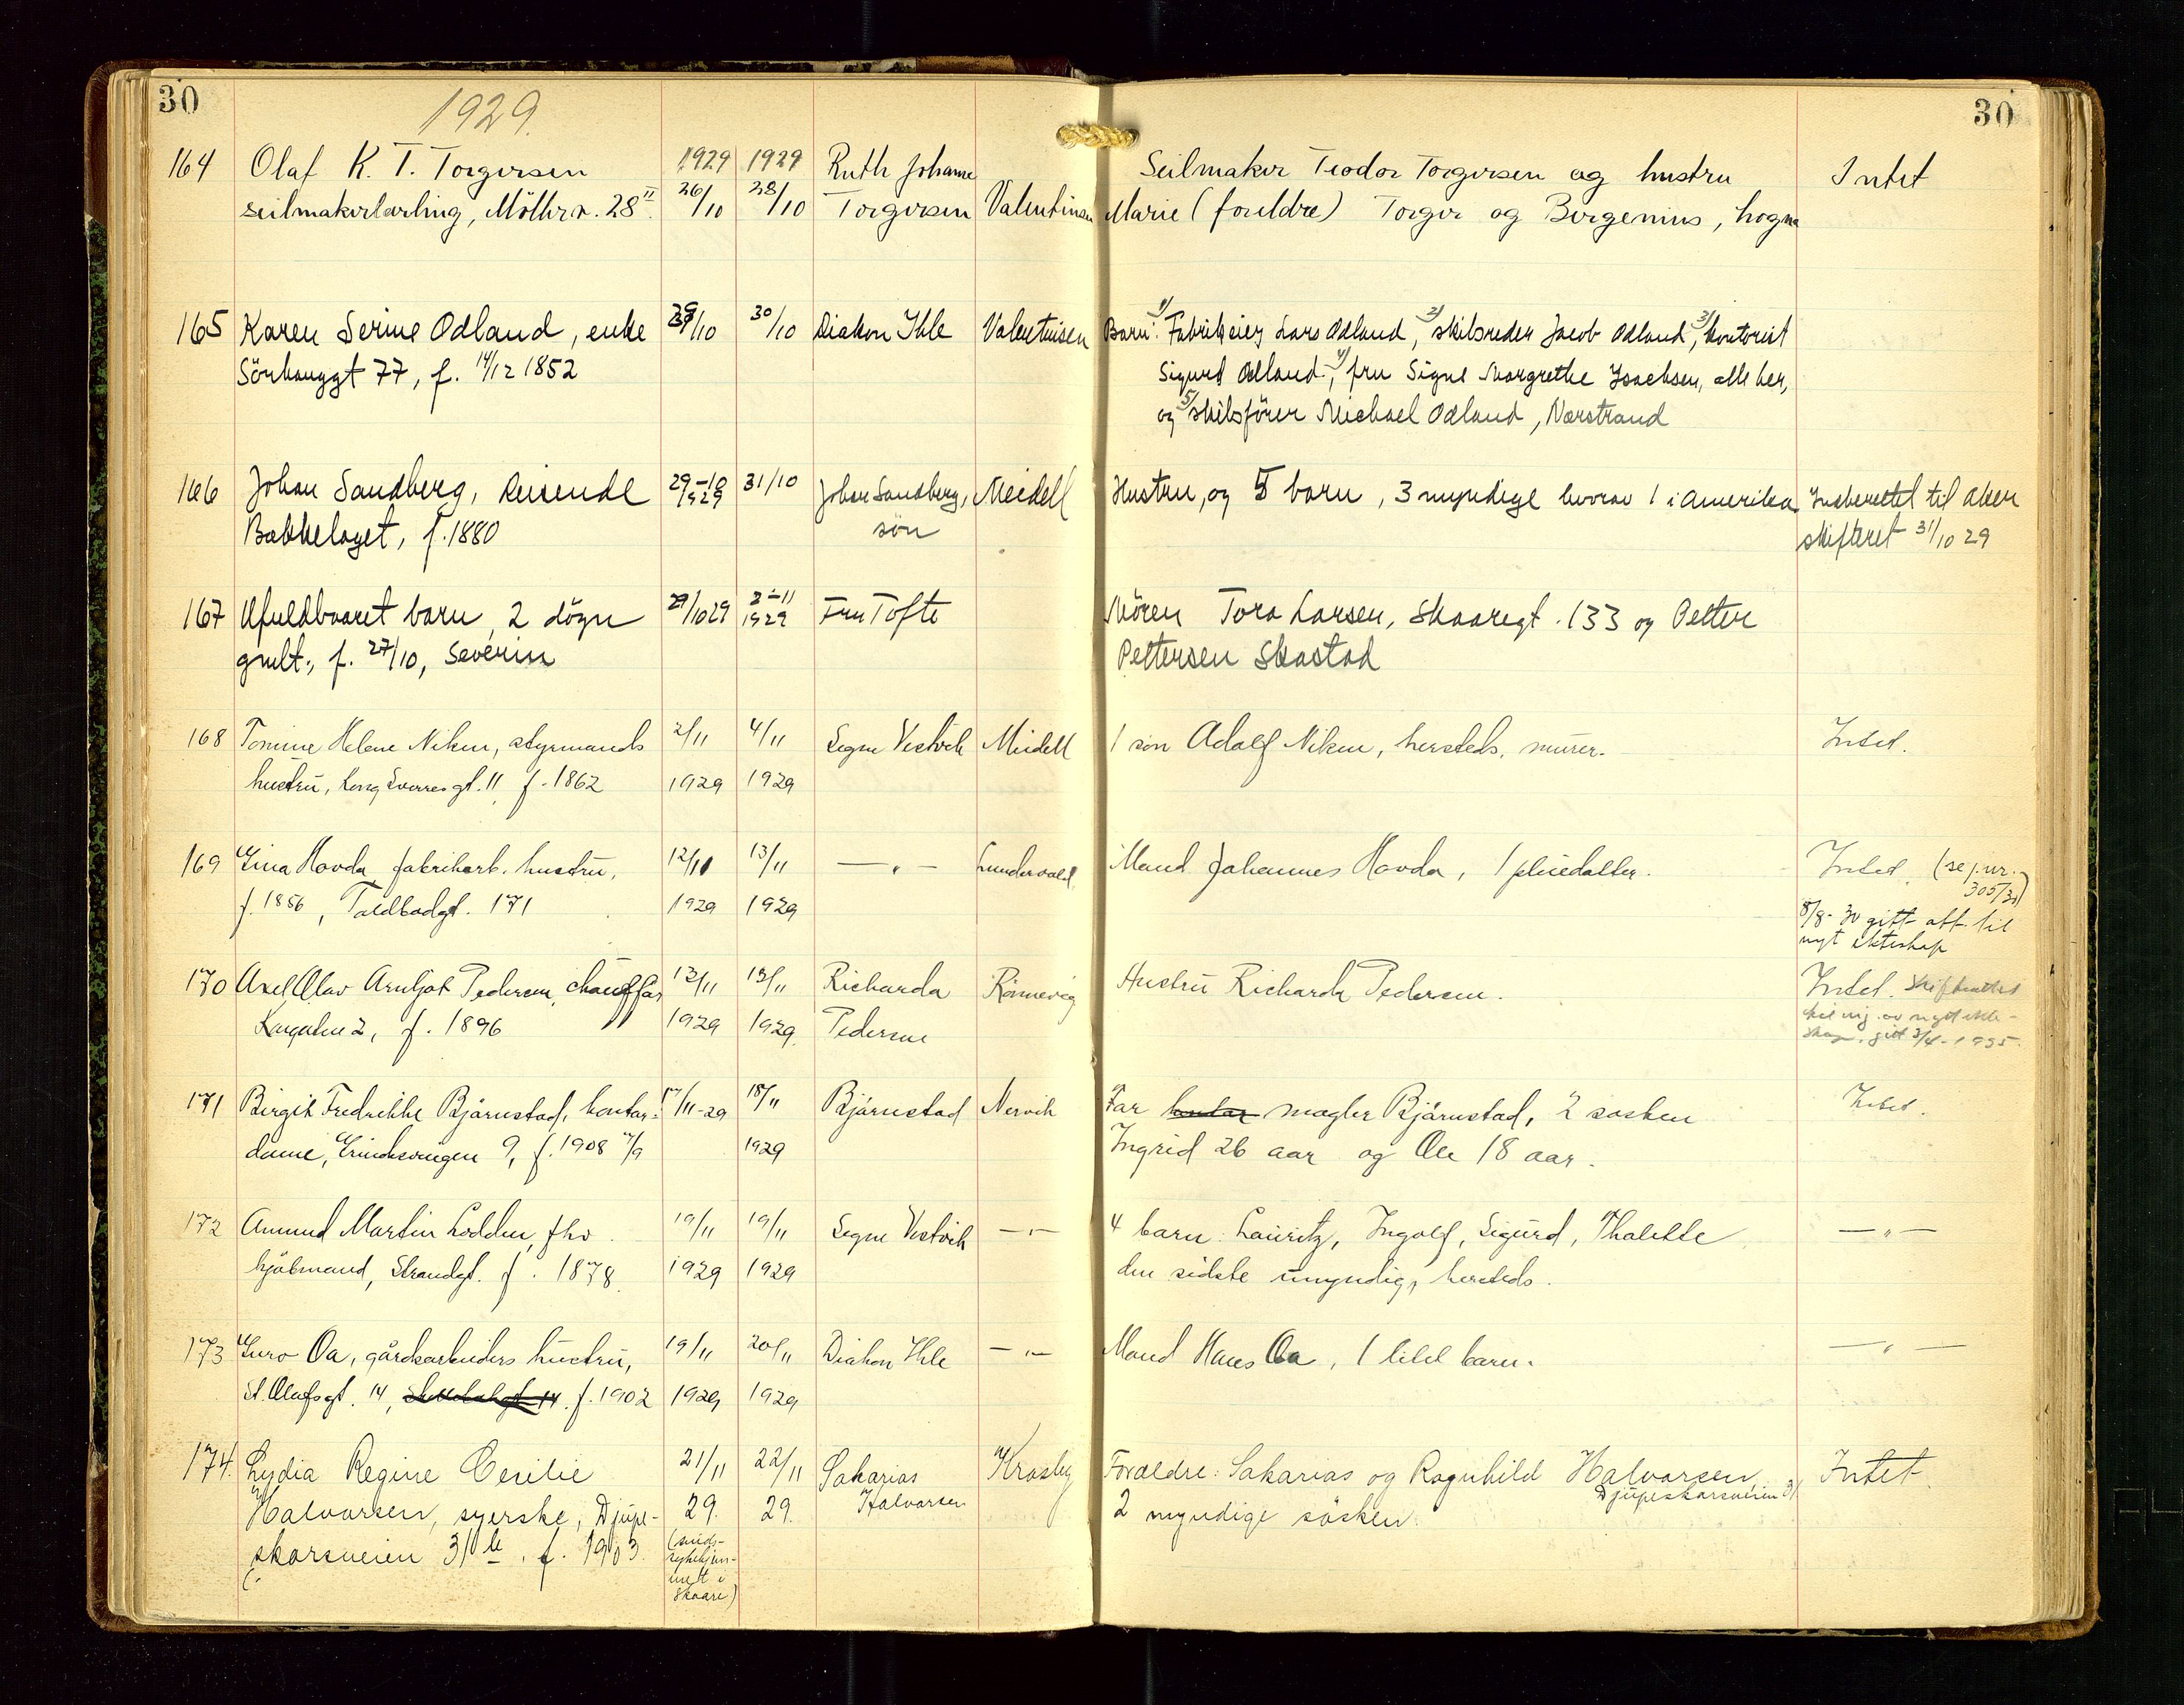 30
1929.
30
164 Olaf K. T. Torgersen 1929 1929 Ruth Johanne Seilmaker Teodor Torgersen og hustru Intet
seilmakerlærling, Möllerv. 28 II. 26/10 28/10 Torgersen Valentinsen Marie (foreldre) Torger og Bergenius, hogma
165 Karen Serine Odland, enke 29/10 30/10 Diakon Ihle Valentinsen Barn: 1/ Fabrikeier Lars Odland, 2/ skibsreder Jacob Odland, 3/ kontorist
Sörhauggt 77, f. 14/12 1852 Sigurd Odland, 4/ fru Signe Margrethe Isachsen, alle her,
og 5/ skibsförer Michael Odland, Nærstrand
166 Johan Sandberg, Reisende 29-10 1929 31/10 Johan Sandberg, Meidell Hustru, og 5 barn, 3 myndige hvorav 1 i Amerika. Indberettet til Aker
Bækkelaget, f. 1880 sön skifteret 31/10 29
167 Ufuldbaaret barn, 2 dögn 29/10 29 2-11 1929 Fru Tofte Mören Tora Larsen, Skaaregt. 133 og Petter
gmlt., f. 27/10, Severin Pettersen Skastad
168 Tomine Helene Nilsen, styrmands 2/11 4/11 Segne Vestvik Meidell 1 sön Adolf Nilsen, hersteds, murer. Intet.
hustru, Kong Sverresgt. 11 f. 1862 1929 1929
169 Gina Hovda, fabrikarb. hustru, 12/11 13/11 —"— Lundervold Mand Johannes Hovda, 1 pleiedatter. Intet. (se j.nr. 305/30)
f. 1856, Toldbodgt. 171 1929 1929 8/8-30 gitt att. til
nyt ekteskap
170 Axel Olav Arnljot Pedersen, chauffør 12/11 13/11 Richarda Rönnevig Hustru Richarda Pedersen. Intet. Skifteattest
2, f. 1896 1929 1929 Pedersen til nyt ekte-
skap, gitt 3/4-1935.
171 Birgit Fredrikke Bjärnstad, kontor- 17/11-29 18/11 Bjärnstad Nervik Far kontor megler Bjärnstad, 2 søsken Intet.
dame, 9, f. 1908 7/9 1929 Ingrid 26 aar og Ole 18 aar.
172 Amund Martin Lodden, fhv. 19/11 19/11 Segne Vestvik —"— 4 barn: Lauritz, Ingolf, Sigurd, Thalette —"—
kjöbmand, Strandgt. f. 1878 1929 1929 den sidste umyndig, hersteds.
173 Guro Oa, gårdsarbeiders hustru, 19/11 20/11 Diakon Ihle —"— Mand Hans Oa, 1 litet barn. —"—
St. Olafsgt. 14, f. 1902 1929 1929
174. Lydia Regine Cecilie 21/11 22/11 Sakarias Krosby Forældre: Sakarias og Ragnhild Halvorsen Intet
Halvorsen, syerske, Djupe- 29. 29. Halvorsen Djupeskarsveien 31
2 myndige søsken.
skarsveien 31 b. f. 1903. (sinds-
sykehjem-
met i
Skaare)